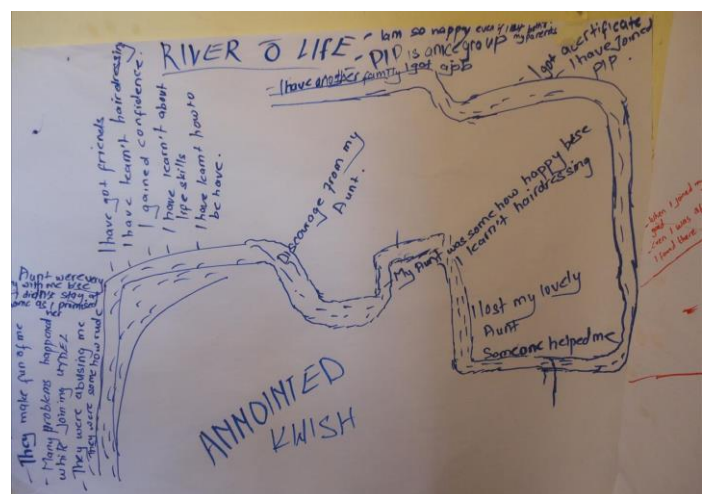 RIVER O LIFE
- Iam so happy even I lost
my parents
- PIP is a nice group
- I have another family I got a job
I got acertificate
I have Joined
PIP.
I have got friends
I have learn't hairdressing
I gained confidence.
I have learn't about
life skills
I have learnt how to
be have.
Discourage from my
Aunt.
My Aunt was some how happy bese
I learn't hairdressing
I lost my lovely
Aunt
Someone helped me
Aunt were
- They make fun of me
- Many problems happened
while Joining
They were abusing me
- They were some how rude
ANNOINTED
KWISH
- when I joined
good
I was
I found there